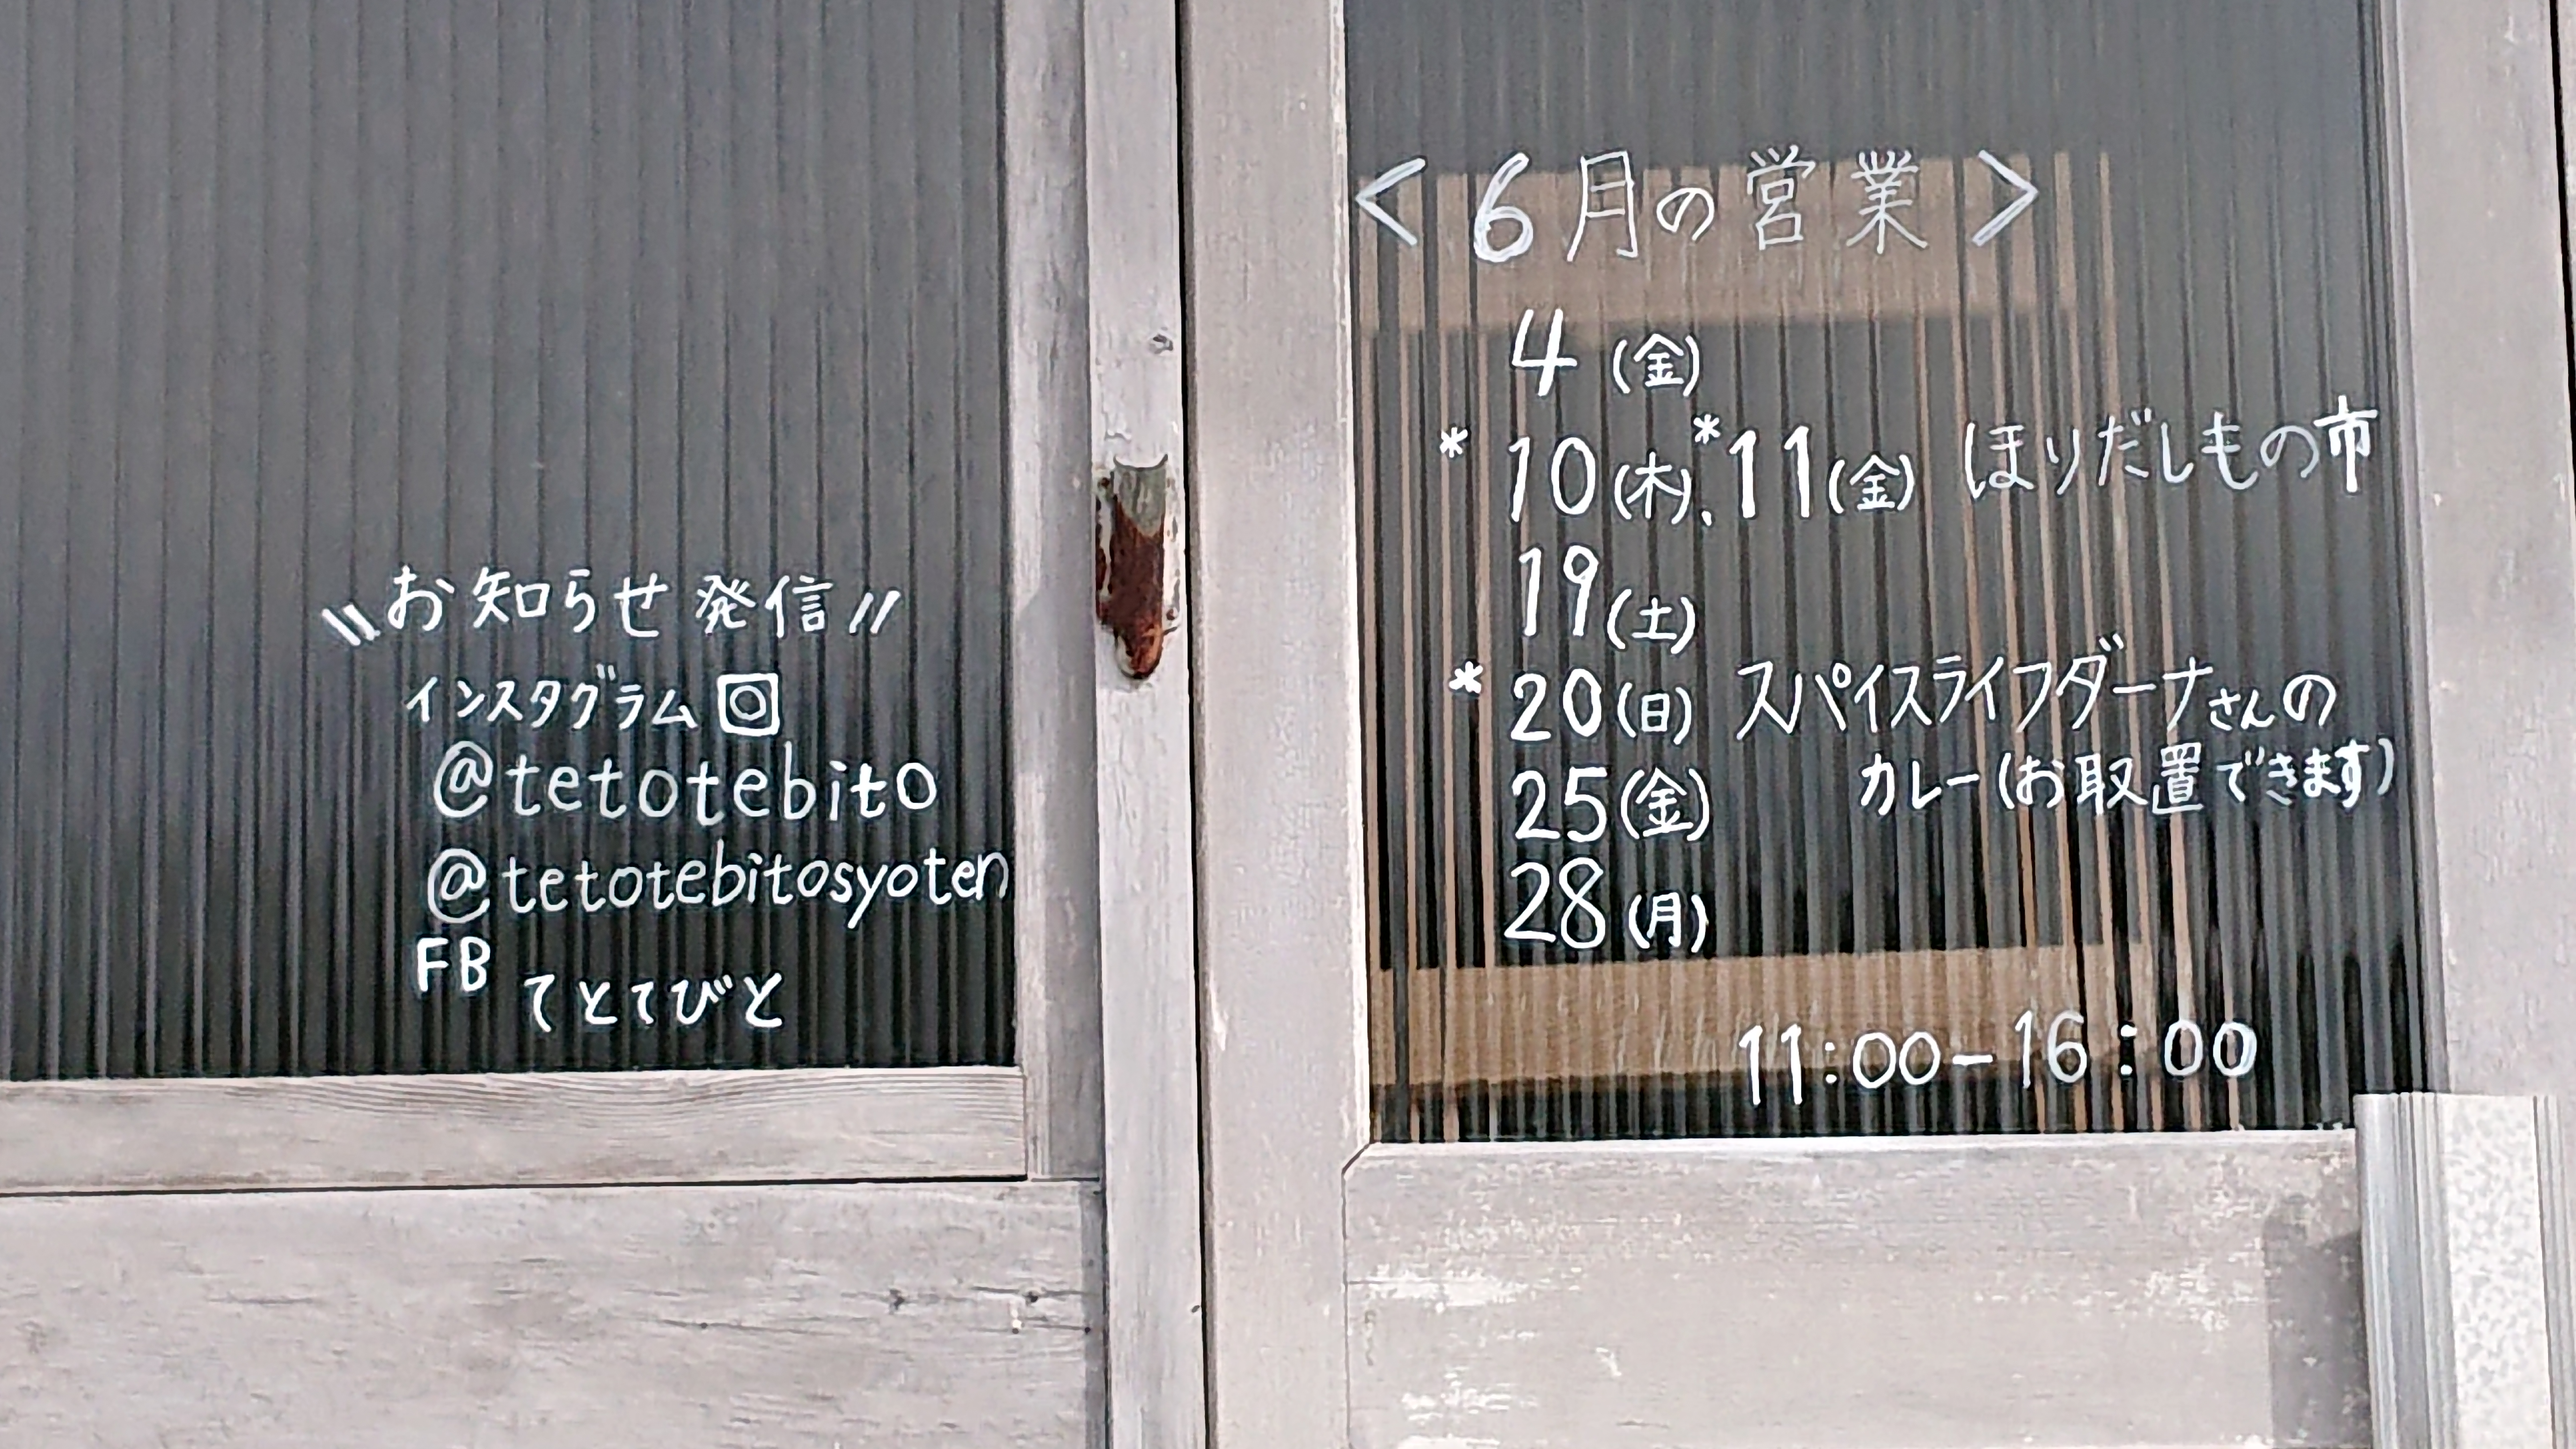 \\お知らせ発信//
インスタグラム
@tetotebito
@tetotebitosyoten
FB てとてびと
<6月の営業>
4(金)
*10(木)、*11(金) ほりだしもの市
19(土)
*20(日) スパイスライフダーナさんの
カレー(お取置できます)
25(金)
28(月)
11:00-16:00